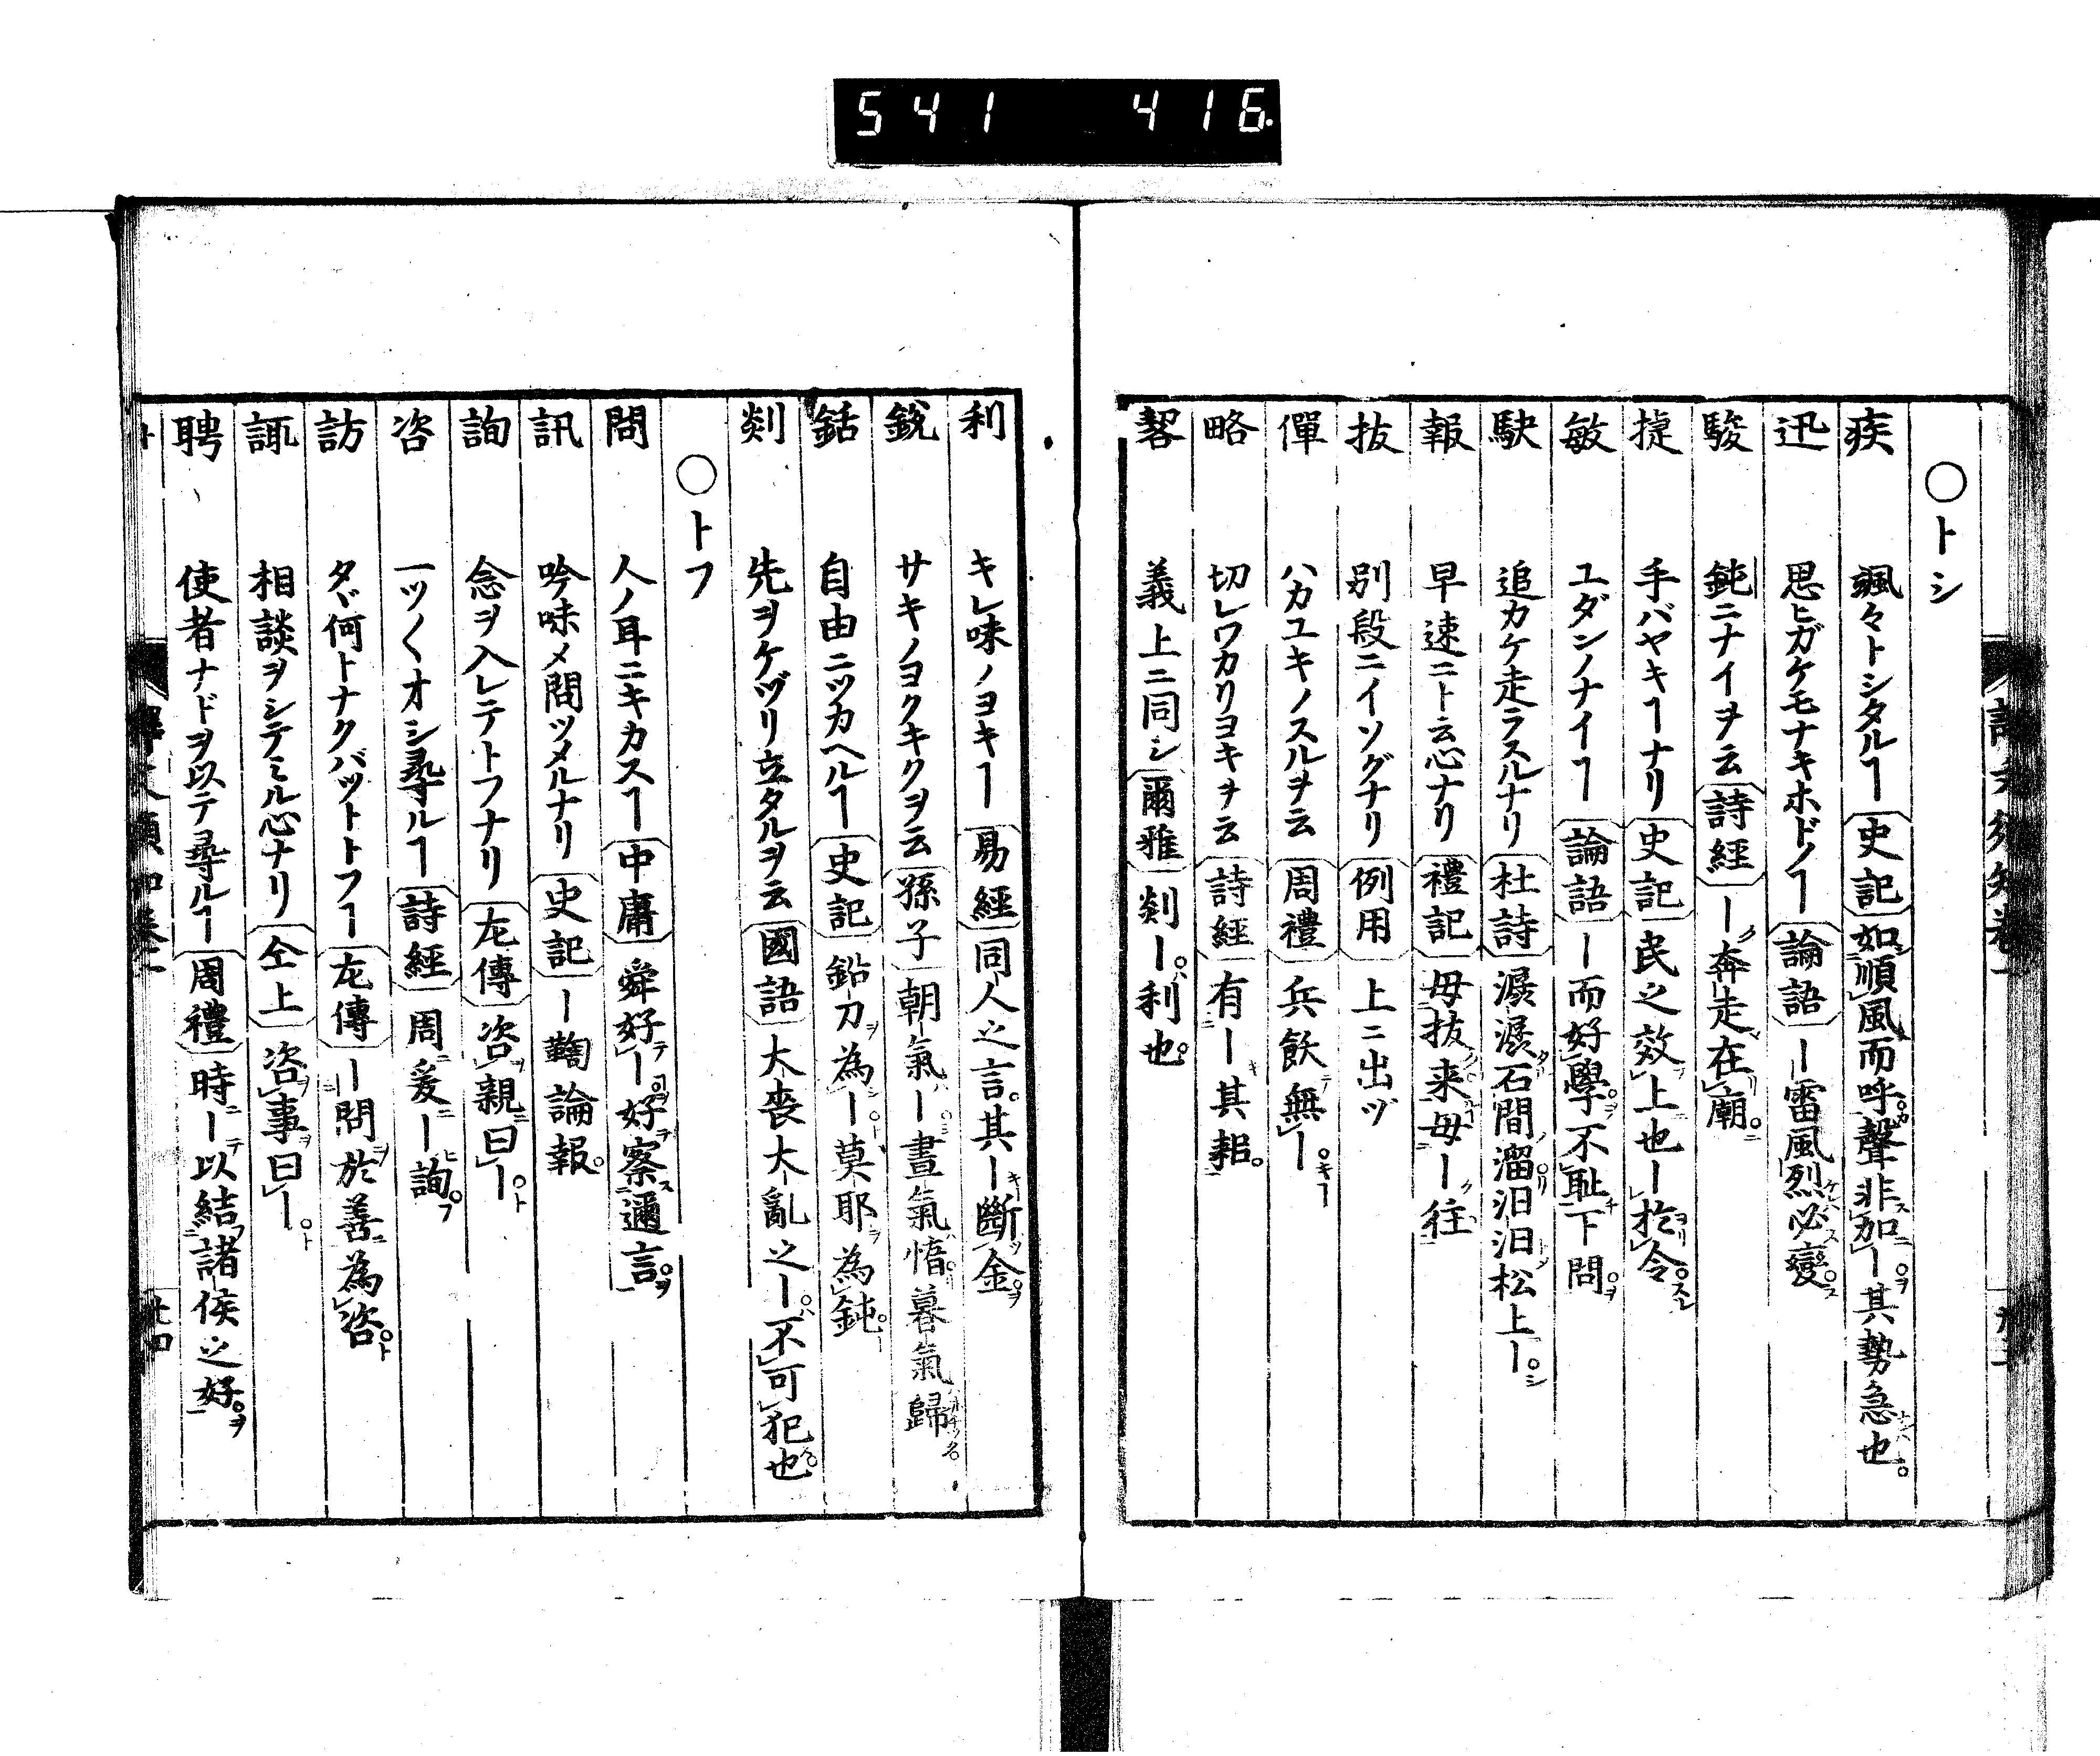 541 416
○トシ
疾 颯々トシタルヿ 史記 如順風而呼聲非加ー其勢急也
迅 思ヒガケモナキホドノヿ 論語 ー雷風烈必變
駿 鈍ニナイヲ云 詩経 ー奔走在廟
捷 手バヤキヿナリ 史記 民之效上也ー於令
敏 ユダンノナイヿ 論語 ー而好學不恥下問
駃 追カケ走ラスルナリ 杜詩 潺潺石間溜汩汩松上ー
報 早速ニト云心ナリ 禮記 毋抜来毋ー往
抜 別段ニイソグナリ 例用 上ニ出ヅ
僤 ハカユキノスルヲ云 周禮 兵飲無ー
略 切レワカリヨキヲ云 詩経 有ー其耜
㓼 義上ニ同シ 爾雅 剡ー利也
利 キレ味ノヨキヿ 易經 同人之言其ー斷金
銳 サキノヨクキクヲ云 孫子 朝氣ー晝氣惰暮氣歸
銛 自由ニツカヘルヿ 史記 鉛刀為ー莫耶為鈍
剡 先ヲケヅリ立タルヲ云 國語 大喪大亂之ー不可犯也
○トフ
問 人ノ耳ニキカスヿ 中庸 舜好ー好察邇言
訊 吟味メ問ツメルナリ 史記 ー鞫論報
詢 念ヲ入レテトフナリ 左傳 咨親曰ー
咨 一ツ〱オシ尋ルヿ 詩經 周爰ー詢
訪 タヾ何トナクバツトトフヿ 左傳 ー問於善為咨
諏 相談ヲシテミル心ナリ 仝上 咨事曰ー
聘 使者ナドヲ以テ尋ルヿ 周禮 時ー以結諸侯之好